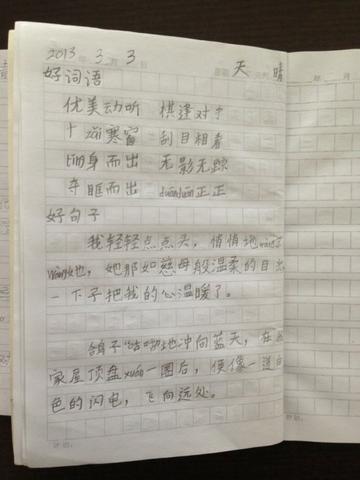 2013 年 3 月 3 星期 天 天气 晴
好词语
优美动听 棋逢对手
十zǎi寒窗 刮目相看
tǐng身而出 无影无踪
夺眶而出 duānduān正正
好句子
我轻轻点点头，悄悄地
她，她那如慈母般温柔的目光
一下子把我的心温暖了。
鸽子"咕"地冲向蓝天，在
家屋顶盘xuán一圈后，便像一道白
色的闪电，飞向远处。